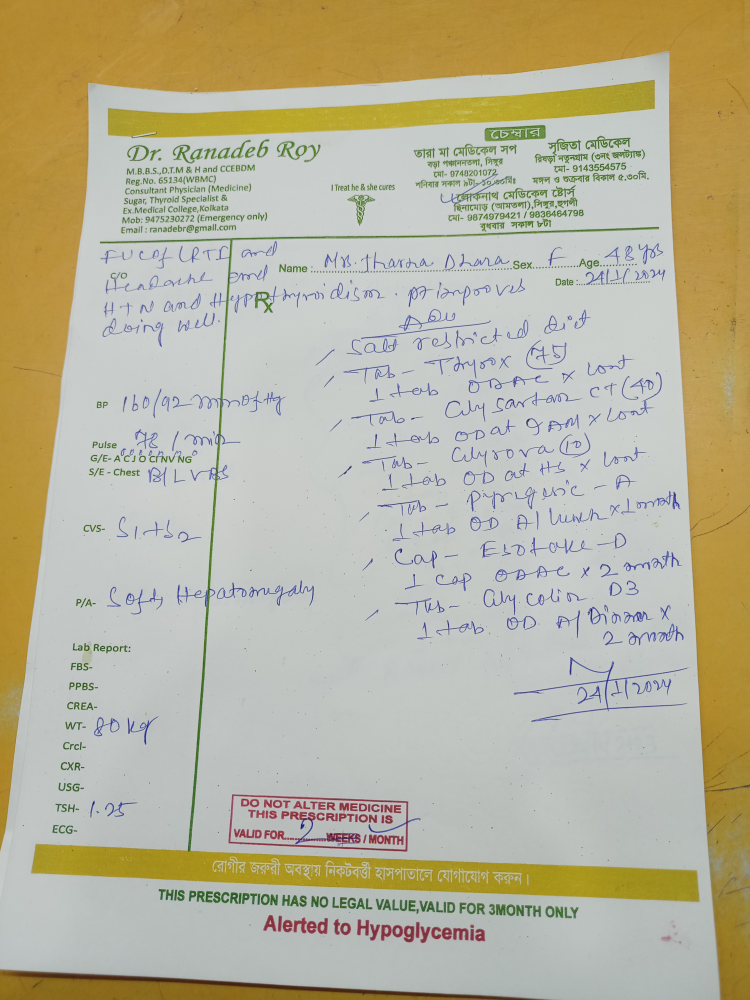 Dr. Ranadeb Roy
M.B.B.S.,D.T.M & H and CCEBDM
Reg.No. 65134(WBMC)
Consultant Physician (Medicine)
Sugar, Thyroid Specialist &
Ex.Medical College,Kolkata
Mob: 9475230272 (Emergency only)
Email : ranadebr@gmail.com
I Treat he & she cures
চেম্বার
তারা মা মেডিকেল সপ
বড়া পঞ্চাননতলা, সিঙ্গুর
মো- 9748201072
শনিবার সকাল ৯টা-
সৃজিতা মেডিকেল
রিষড়া নতুনগ্রাম (৩নং জলট্যাঙ্ক)
মো- 9143554575
মঙ্গল ও শুক্রবার বিকাল ৫.৩০মি.
লোকনাথ মেডিকেল ষ্টোর্স
ছিনামোড় (আমতলা),সিঙ্গুর,হুগলী
মো- 9874979421 / 9836464798
বুধবার সকাল ৮টা
FUC of LRTI and
C/O
Headache and
HTN and Hypothyroidism. pt improves
doing well.
Name : Mrs. Jharna Dhara Sex. F Age. 48 yrs
Date : 24/1/2024
Rx
Adv
Salt restricted diet
Tab- Thyrox (75)
1 tab ODAC x cont
Tab- Glysartan CT (40)
1 tab OD at 9 AM x cont
Tab- Glyrova (10)
1 tab OD at HS x cont
Tab- - A
1 tab OD A/ lunch x 1 month
Cap- Esofake-D
1 cap ODAC x 2 month
Tab- Glycolin D3
1 tab OD A/ Dinner x
2 month
24/1/2024
BP 160/92 mm of Hg
Pulse 78 / min
G/E- A C J O CI NV NG
S/E - Chest B/L VBS
CVS- S1+S2
P/A- Soft, Hepatomegaly
Lab Report:
FBS-
PPBS-
CREA-
WT- 80 kg
Crcl-
CXR-
USG-
TSH- 1.25
ECG-
DO NOT ALTER MEDICINE
THIS PRESCRIPTION IS
VALID FOR........2........WEEKS / MONTH
রোগীর জরুরী অবস্থায় নিকটবর্ত্তী হাসপাতালে যোগাযোগ করুন।
THIS PRESCRIPTION HAS NO LEGAL VALUE,VALID FOR 3MONTH ONLY
Alerted to Hypoglycemia